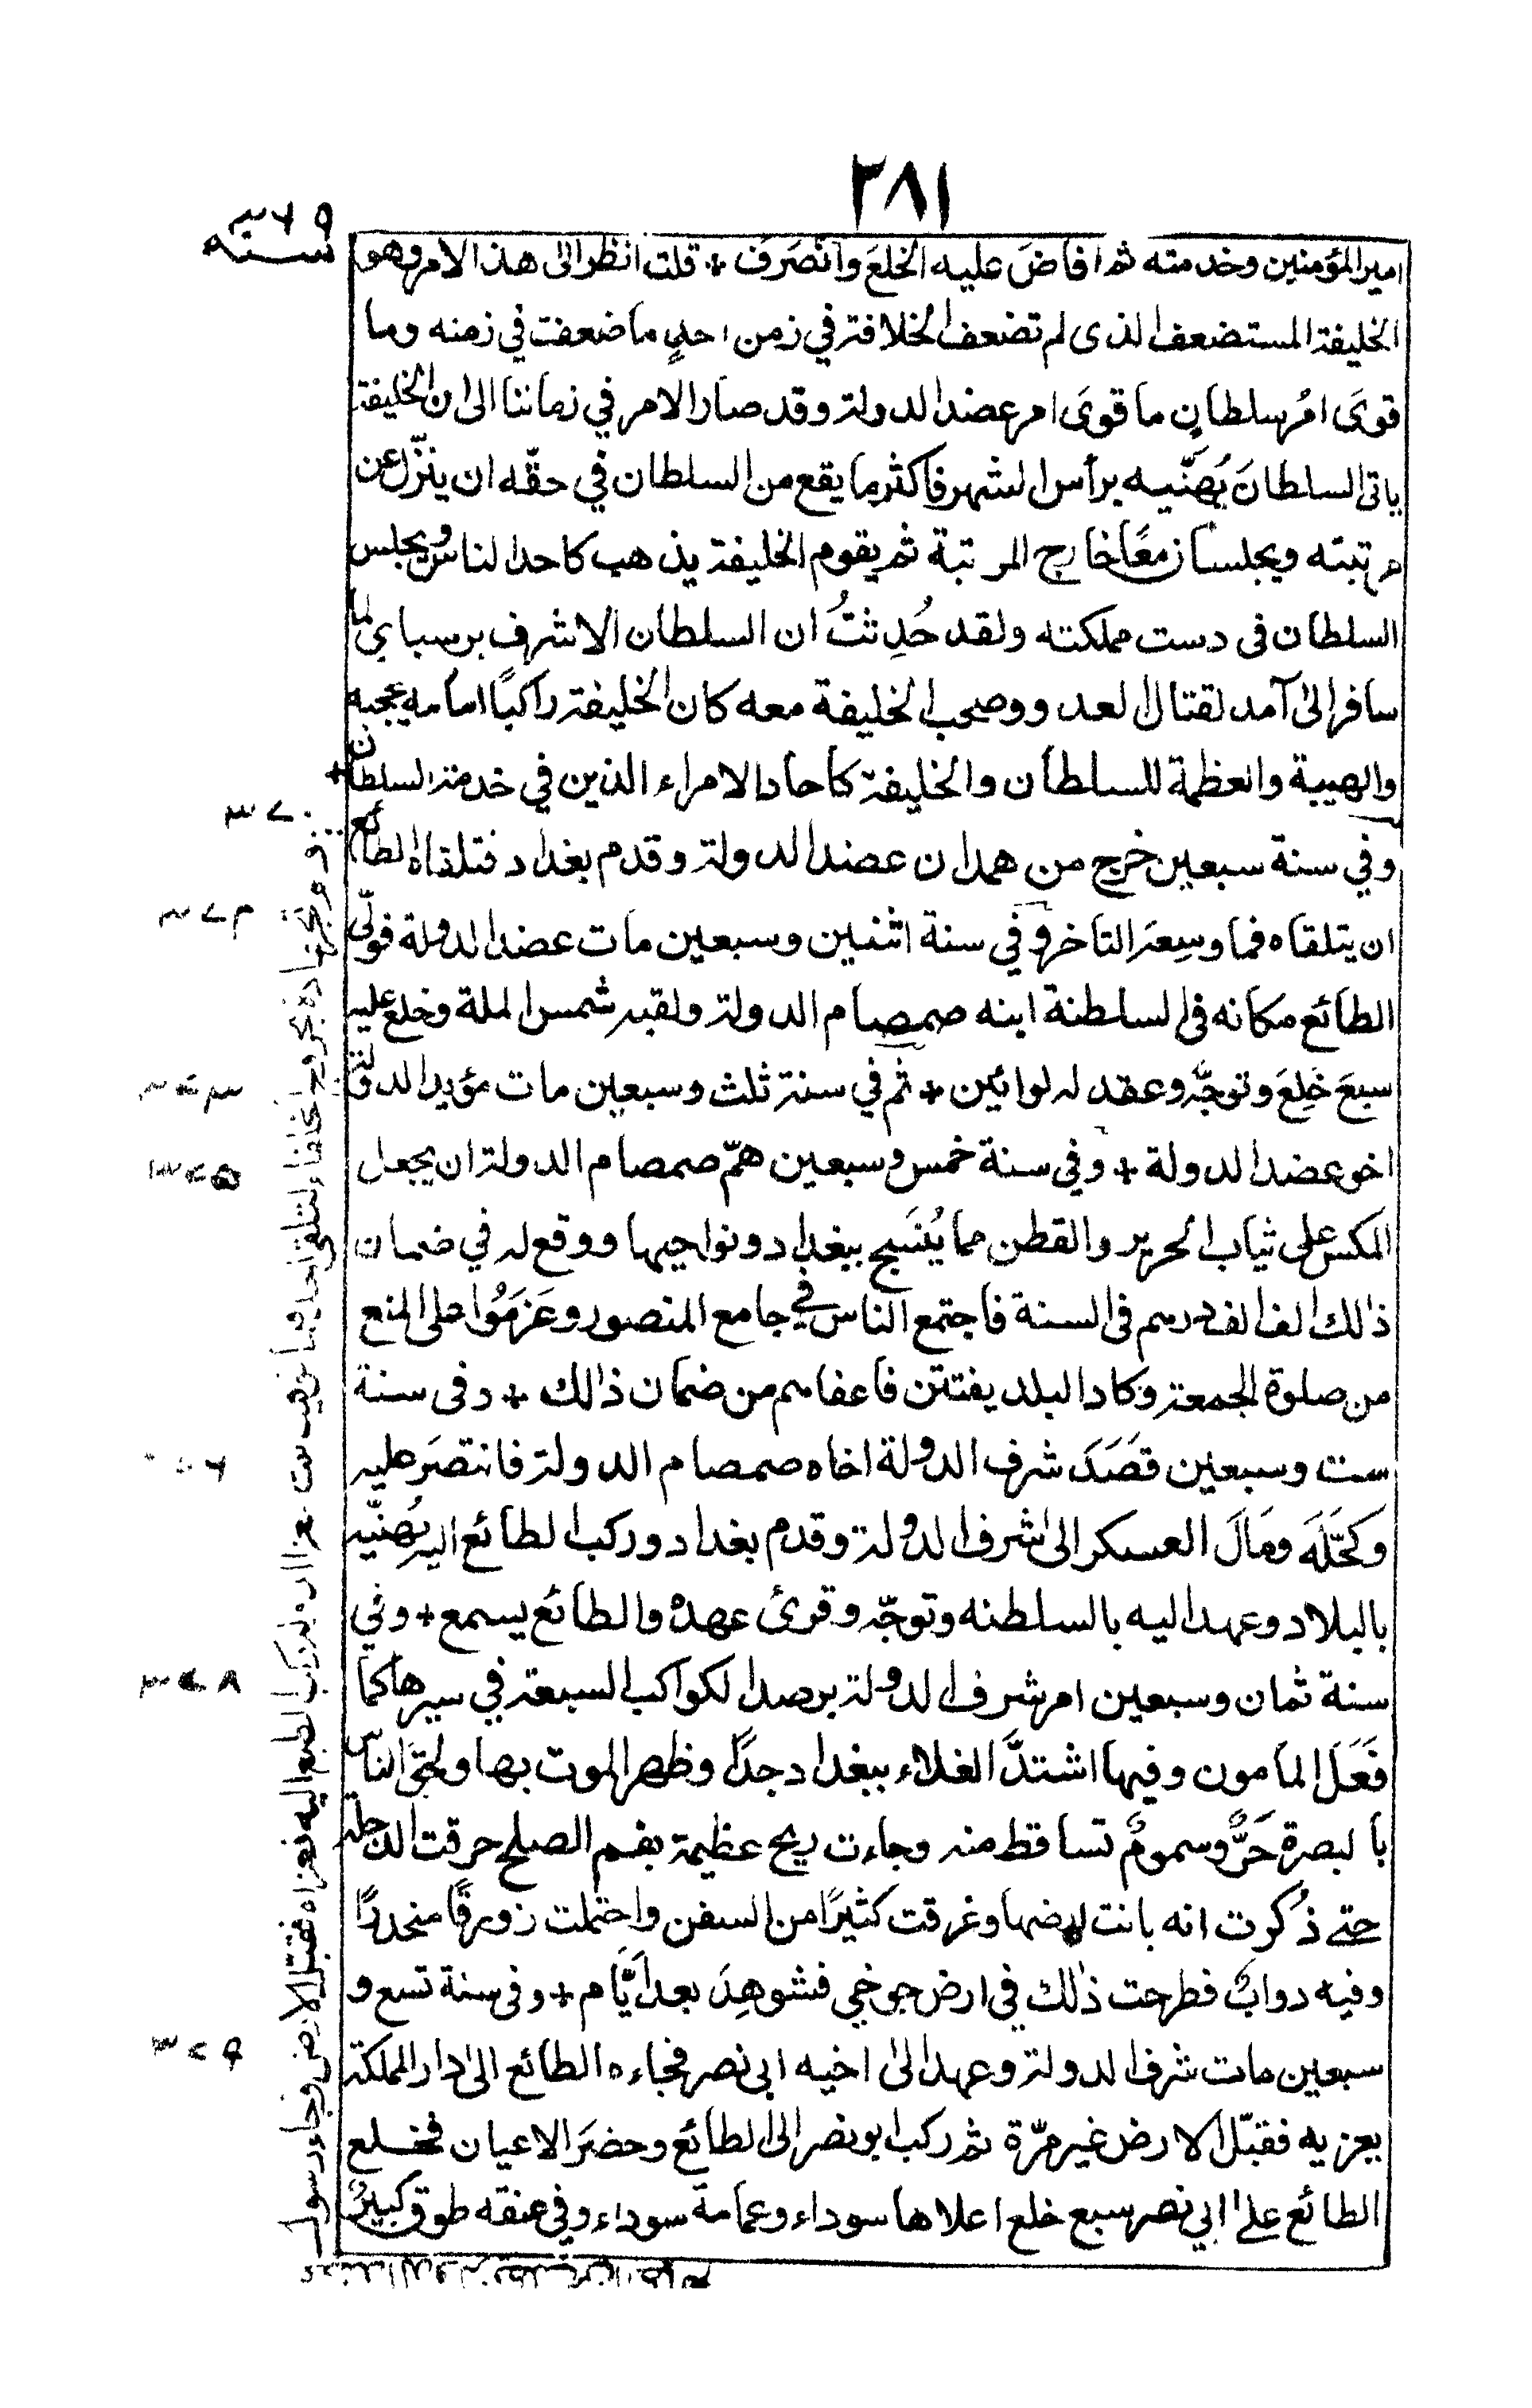 ٢٨١
سنه ٣٦٩
امير المؤمنين وخدمته ثم افاضَ عليه الخلعَ وانصَرَف + قلت انظر الى هذا الامر وهو
الخليفة المستضعف الذى لم تضعف الخلافة في زمن احدٍ ما ضعفت في زمنه وما
قوىَ امرُ سلطانٍ ما قوىَ امر عضد الدولة وقد صار الامر في زماننا الى ان الخليفة
ياتى السلطانَ يُهَنّيه برأس الشهر فاكثر ما يقع من السلطان في حقّه ان ينزّل عن
مرتبته ويجلسان معًا خارج المرتبة ثم يقوم الخليفة يذهب كاحد الناس ويجلس
السلطان فى دست مملكته ولقد حُدِثتُ ان السلطان الاشرف برسباي لما
سافر الىٰ آمد لقتال العدو وصحب الخليفة معه كان الخليفة راكبًا امامه يحجبه
والهيبة والعظمة للسلطان والخليفة كآحاد الامراء الذين في خدمة السلطان +
٣٧٠
وفي سنة سبعين خرج من همدان عضد الدولة وقدم بغداد فتلقاه الطائع
٣٧٢
ان يتلقاه فما وسِعَه التاخر وفي سنة اثنين وسبعين مات عضد الدولة فولّى
الطائع مكانه فى السلطنة ابنه صمصام الدولة ولقبه شمس الملة وخلع عليه
٣٧٣
سبعَ خِلعَ وتوجّه وعقد له لوائين + ثم في سنة ثلث وسبعين مات مؤيد الدولة
٣٧٥
اخو عضد الدولة + وفي سنة خمس وسبعين همّ صمصام الدولة ان يجعل
المكس على ثياب الحرير والقطن مما يُنسَج ببغداد ونواحيها ووقع له في ضمان
ذٰلك الف الف درهم فى السنة فاجتمع الناس في جامع المنصور وعَزمَوُا على المنع
من صلوة الجمعة وكاد البلد يفتتن فاعفاهم من ضمان ذٰلك + وفى سنة
٦
ست وسبعين قصَدَ شرف الدولة اخاه صمصام الدولة فانتصَر عليه
وَكحّلَه ومَالَ العسكر الىٰ شرف الدولة وقدم بغداد وركب الطائع اليه يُهنّيه
بالبلاد وعهد اليه بالسلطنه وتوجّه وقرئ عهده والطائع يسمع + وفي
٣٧٨
سنة ثمان وسبعين امر شرف الدولة برصد الكواكب السبعة في سيرها كما
فَعَل المامون وفيها اشتدَّ الغلاء ببغداد جدًا وظهر الموت بها ولحق الناس
بالبصرة حَرٌّ وسمومٌ تساقط منه وجاءت ريح عظيمة بفم الصلح حرقت الدجلة
حتى ذُكرت انه بانت ارضها وغرقت كثيرًا من السفن واحتملت زورقًا منحدرًا
وفيه دوابٌ فطرحت ذٰلك في ارض جوخي فشوهِدَ بعد ايَّام + وفى سنة تسع و
٣٧٩
سبعين مات شرف الدولة وعهد الىٰ اخيه ابى نصر فجاءه الطائع الىٰ دار المملكة
يعزيه فقبّل الارض غير مرّة ثم ركب ابو نصر الى الطائع وحضَر الاعيان فخلع
الطائع علىٰ ابي نصر سبع خلع اعلاها سوداء وعمامة سوداء وفي عنقه طوق كبيرٌ